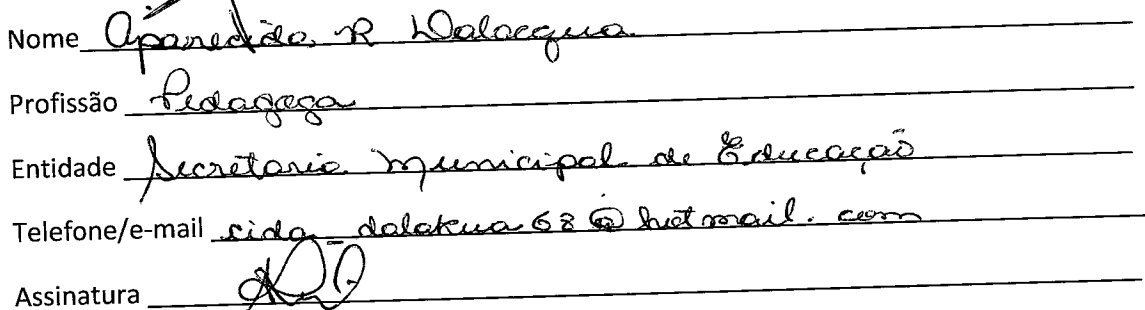 Nome Aparecida R Dalacqua
Profissão Pedagoga
Entidade Secretaria Municipal de Educação
Telefone/e-mail cida_dalakua68@hotmail.com
Assinatura